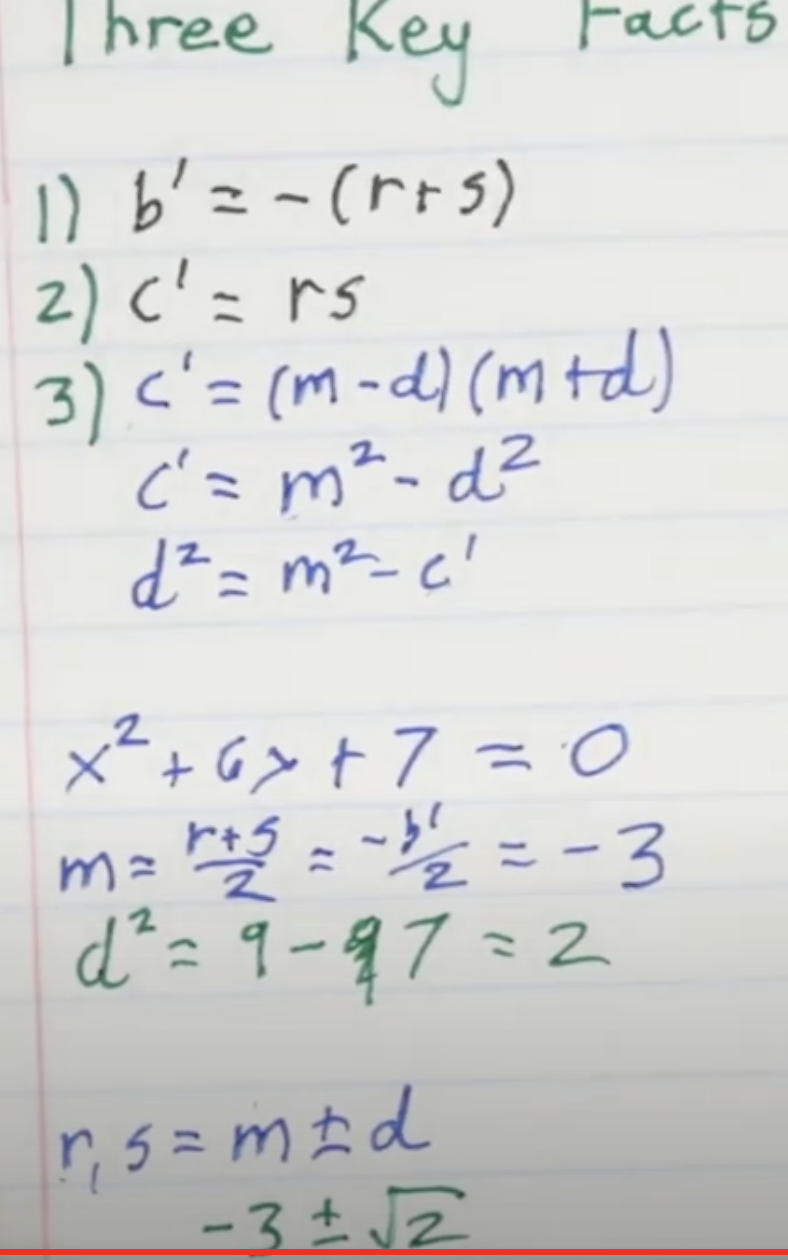 Three Key Facts
1) b' = -(r+s)
2) c' = rs
3) c' = (m-d)(m+d)
c' = m² - d²
d² = m² - c'
x² + 6x + 7 = 0
m = r+s/2 = -b'/2 = -3
d² = 9 - 7 = 2
r, s = m ± d
-3 ± √2